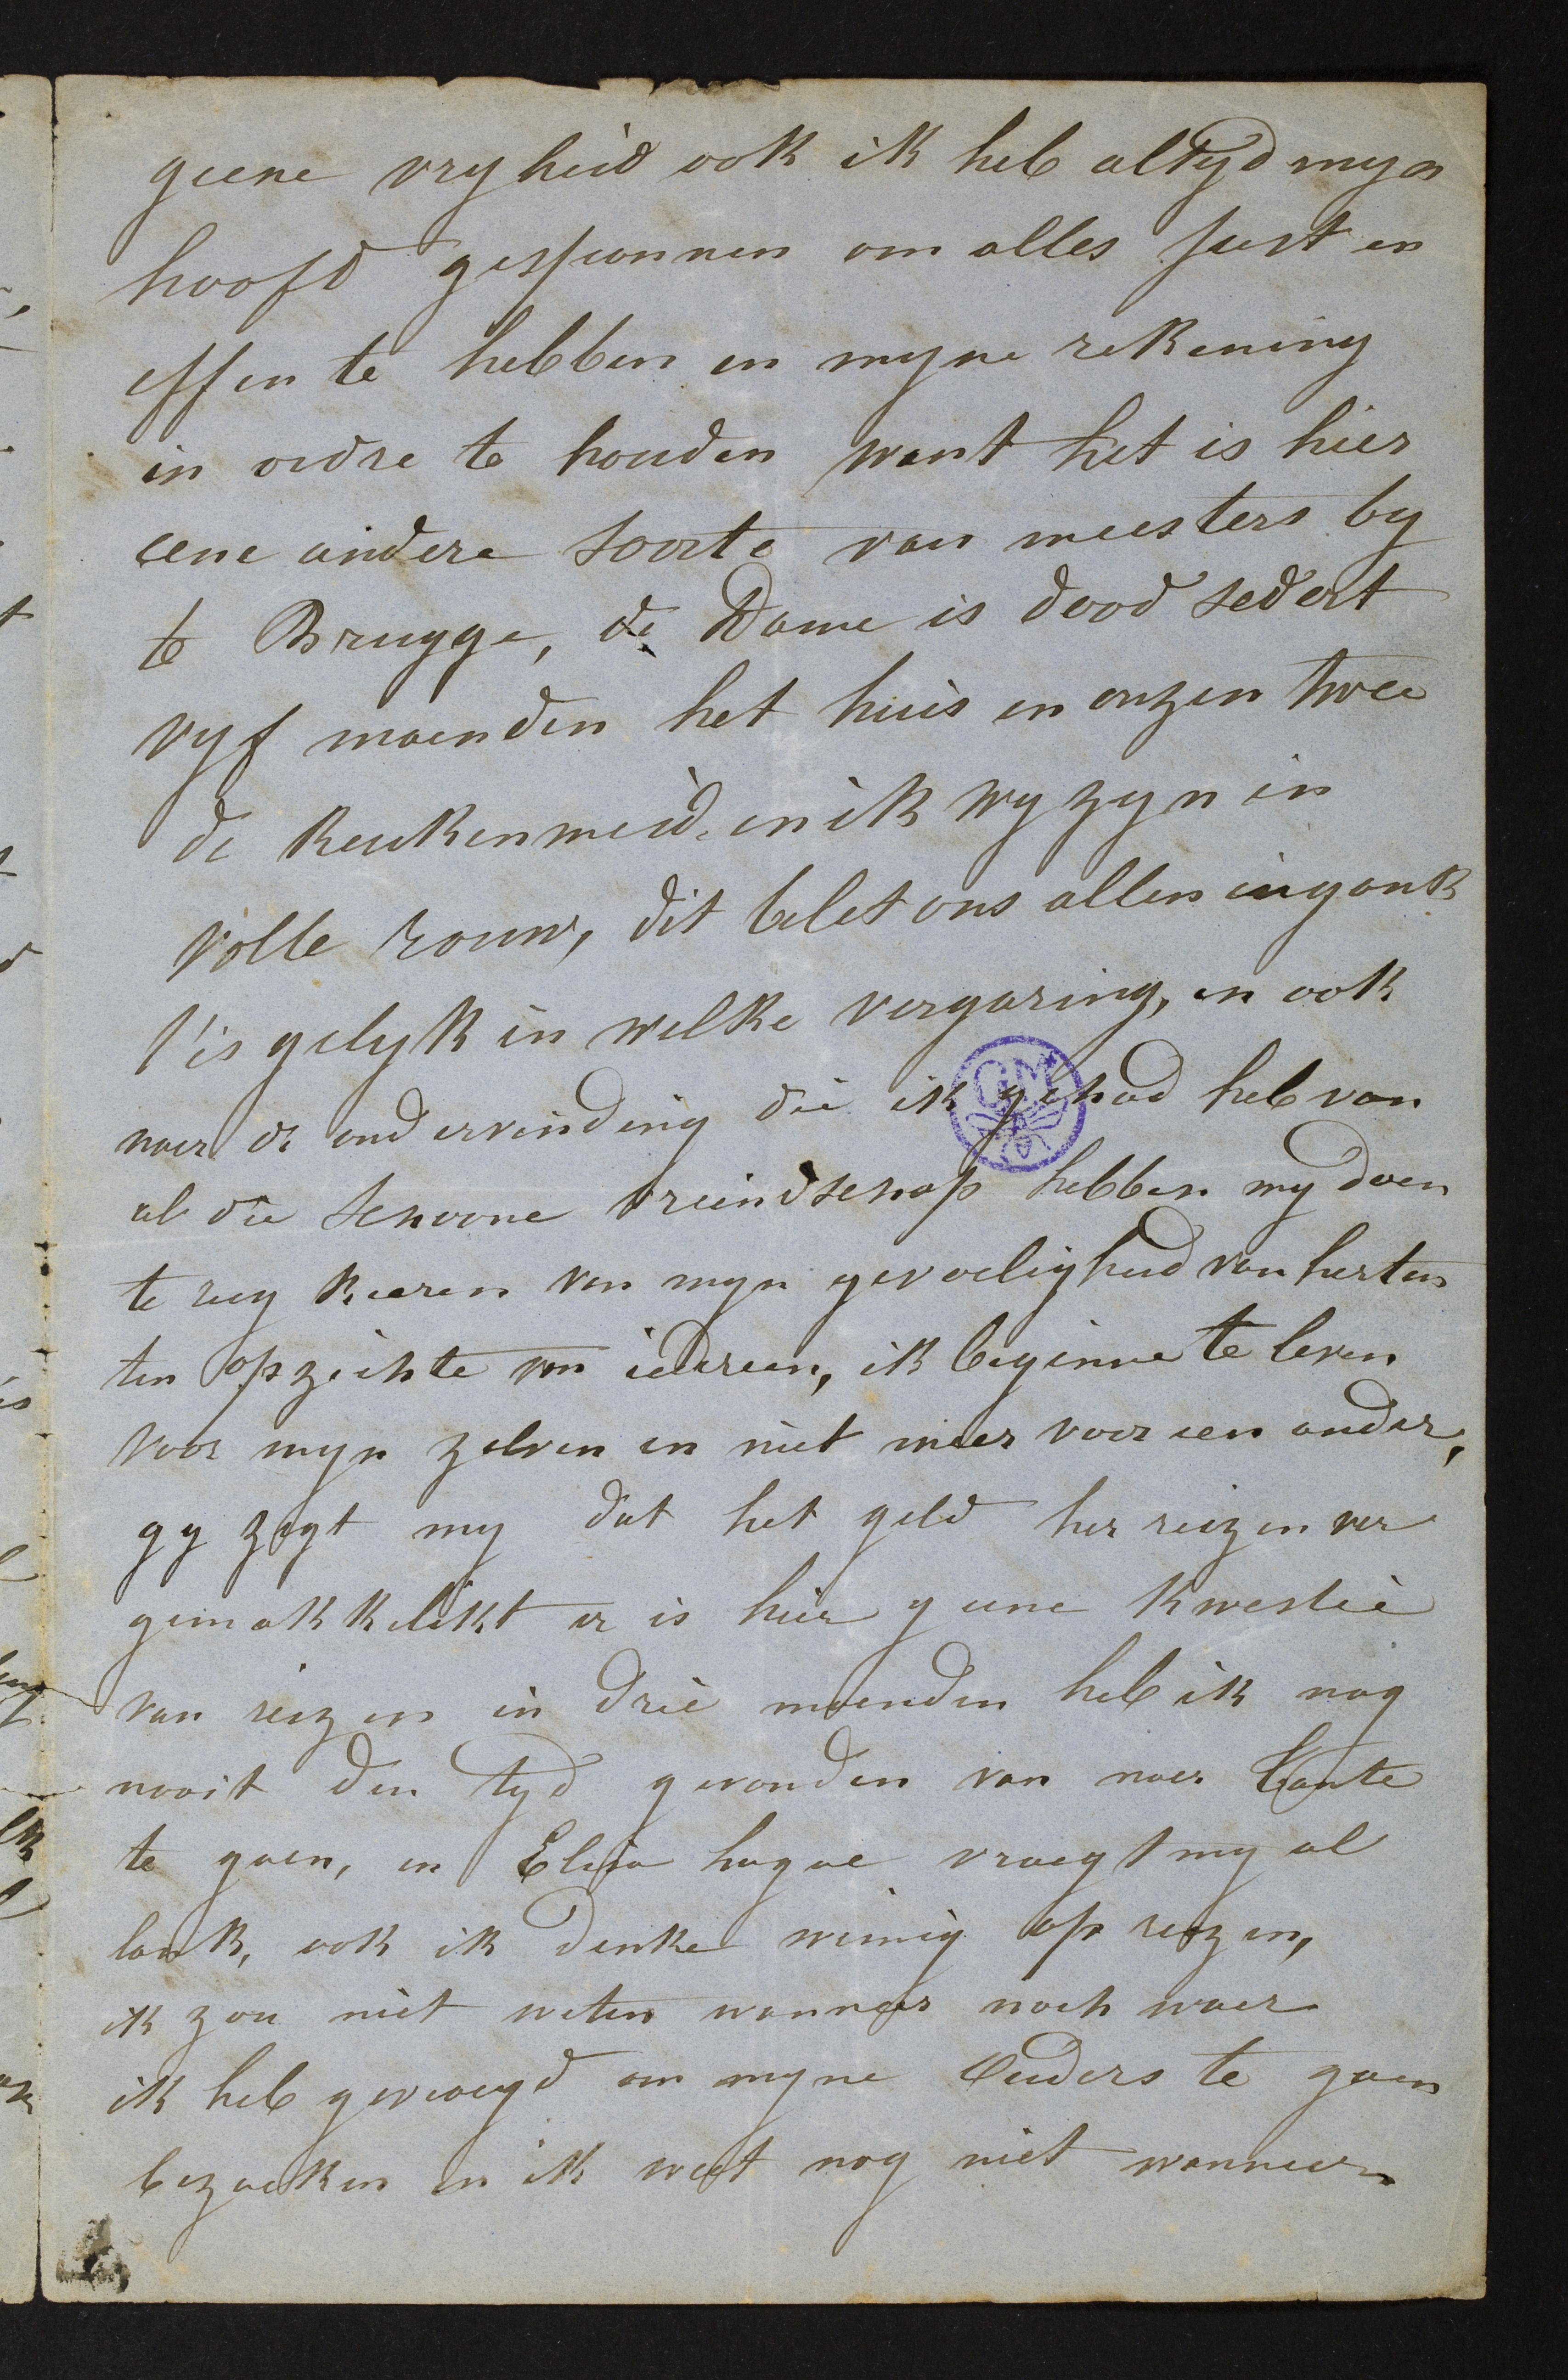 geene vryheid ook ik heb altyd myn
hoofd gespannen om alles just en
effen te hebben en myne rekening
in ordre te houden want het is hier
eene andere soorte van meesters by
te Brugge, de Dame is dood sedert
vyf maenden het huis en onzen twee
de keukenmeid en ik wy zyn in
volle rouw, dit belet ons allen ingank
t'is gelyk in welke vergaring, en ook
naer de ondervinding die ik gehad heb van
al die schoone vriendschap hebben my doen
te rug keeren van myn gevoeligheid van herten
ten opzichte van iedereen, ik beginne te leven
voor myn zelven en niet meer voor een ander,
gy zegt my dat het geld her reizen ver
gemakkelikt er is hier geene kwestie
van reizen in drie maenden heb ik nog
nooit den tyd gevonden van naer Tante
te gaen, en Elisa vraegt my al
lank, ook ik denke weinig op reizen,
ik zou niet weten wanneer noch waer
ik heb gevraegd om myne Ouders te gaen
bezoeken en ik weet nog niet wanneer
GM